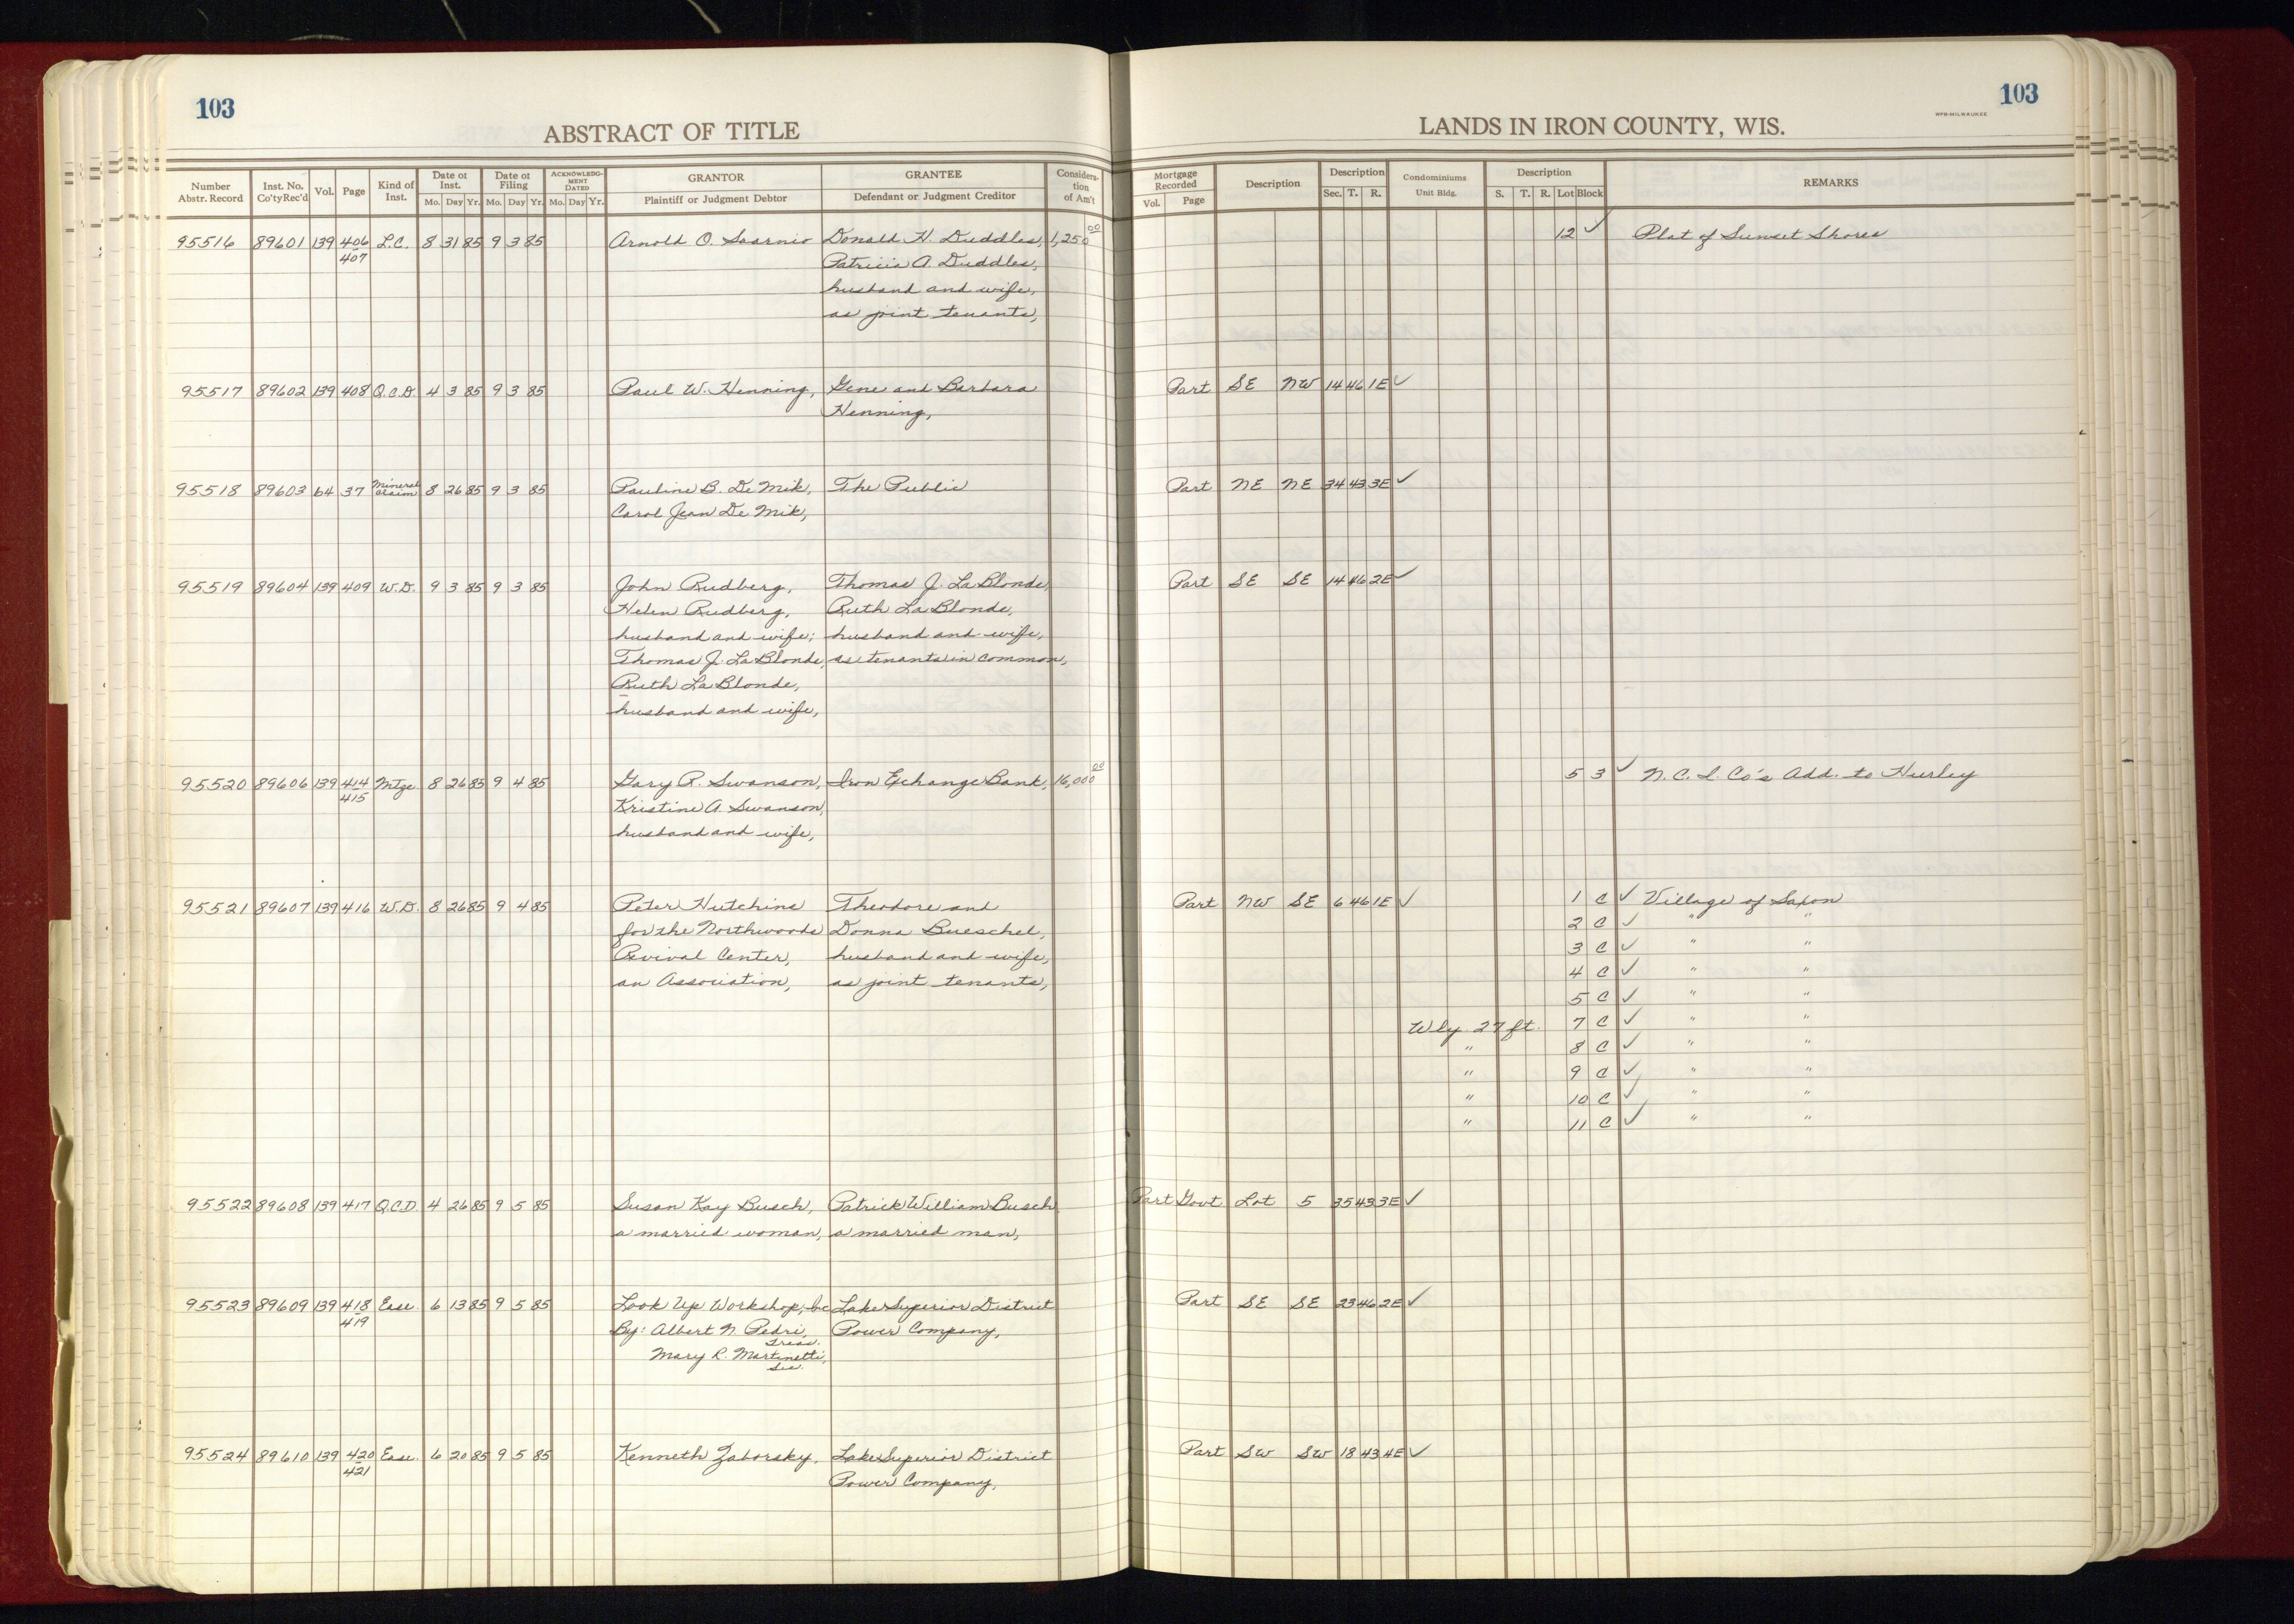 103
ABSTRACT OF TITLE
103
LANDS IN IRON COUNTY, WIS.
WPB-MILWAUKEE
Number Abstr. Record | Inst. No. Co'ty Rec'd | Vol. | Page | Kind of Inst. | Date of Inst. Mo. Day Yr. | Date of Filing Mo. Day Yr. | ACKNOWLEDGMENT DATED Mo. Day Yr. | GRANTOR Plaintiff or Judgment Debtor | GRANTEE Defendant or Judgment Creditor | Consideration of Am't | Mortgage Recorded Vol. Page | Description | Description Sec. T. R. | Condominiums Unit Bldg. | Description S. T. R. Lot Block | REMARKS
95516 89601 139 406 L.C. 8 31 85 9 3 85 Arnold O. Saarnio Donald H. Duddles, 1,250 00 12 ✓ Plat of Sunset Shores
407 Patricia A. Duddles,
husband and wife,
as joint tenants,
95517 89602 139 408 Q.C.D. 4 3 85 9 3 85 Paul W. Henning, Gene and Barbara Part SE NW 14 46 1E ✓
Henning,
95518 89603 64 37 Mineral Claim 8 26 85 9 3 85 Pauline B. De Mik, The Public Part NE NE 34 43 3E ✓
Carol Jean De Mik,
95519 89604 139 409 W.D. 9 3 85 9 3 85 John Rudberg, Thomas J. La Blonde, Part SE SE 14 46 2E ✓
Helen Rudberg, Ruth La Blonde,
husband and wife; husband and wife,
Thomas J. La Blonde, as tenants in common,
Ruth La Blonde,
husband and wife,
95520 89606 139 414 Mtge 8 26 85 9 4 85 Gary R. Swanson, Iron Exchange Bank, 16,000 00 5 3 ✓ N.C.I. Co's Add. to Hurley
415 Kristine A. Swanson,
husband and wife,
95521 89607 139 416 W.D. 8 26 85 9 4 85 Peter Hutchins Theodore and Part NW SE 6 46 1E ✓ 1 C ✓ Village of Saxon
for the Northwoods Donna Bueschel, 2 C ✓ " "
Revival Center, husband and wife, 3 C ✓ " "
an Association, as joint tenants, 4 C ✓ " "
5 C ✓ " "
Wly 27 ft. 7 C ✓ " "
" 8 C ✓ " "
" 9 C ✓ " "
" 10 C ✓ " "
" 11 C ✓ " "
95522 89608 139 417 Q.C.D. 4 26 85 9 5 85 Susan Kay Busch, Patrick William Busch Part Govt Lot 5 35 43 3E ✓
a married woman, a married man,
95523 89609 139 418 Ease. 6 13 85 9 5 85 Look Up Workshop, Inc Lake Superior District Part SE SE 23 46 2E ✓
419 By: Albert N. Pedri, Treas. Power Company,
Mary R. Martinetti, Sec.
95524 89610 139 420 Ease. 6 20 85 9 5 85 Kenneth Zaborsky, Lake Superior District Part SW SW 18 43 4E ✓
421 Power Company,